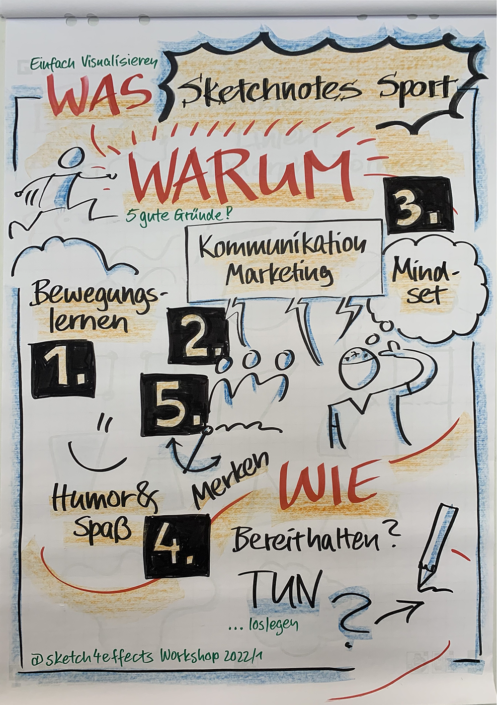 Einfach Visualisieren
WAS
Sketchnotes Sport
WARUM
5 gute Gründe?
3.
Kommunikation
Marketing
Mind-
set
Bewegungs-
lernen
1.
2.
5.
Merken
Humor &
Spaß
4.
WIE
Bereithalten?
TUN
... loslegen
?
@sketch4effects Workshop 2022/1